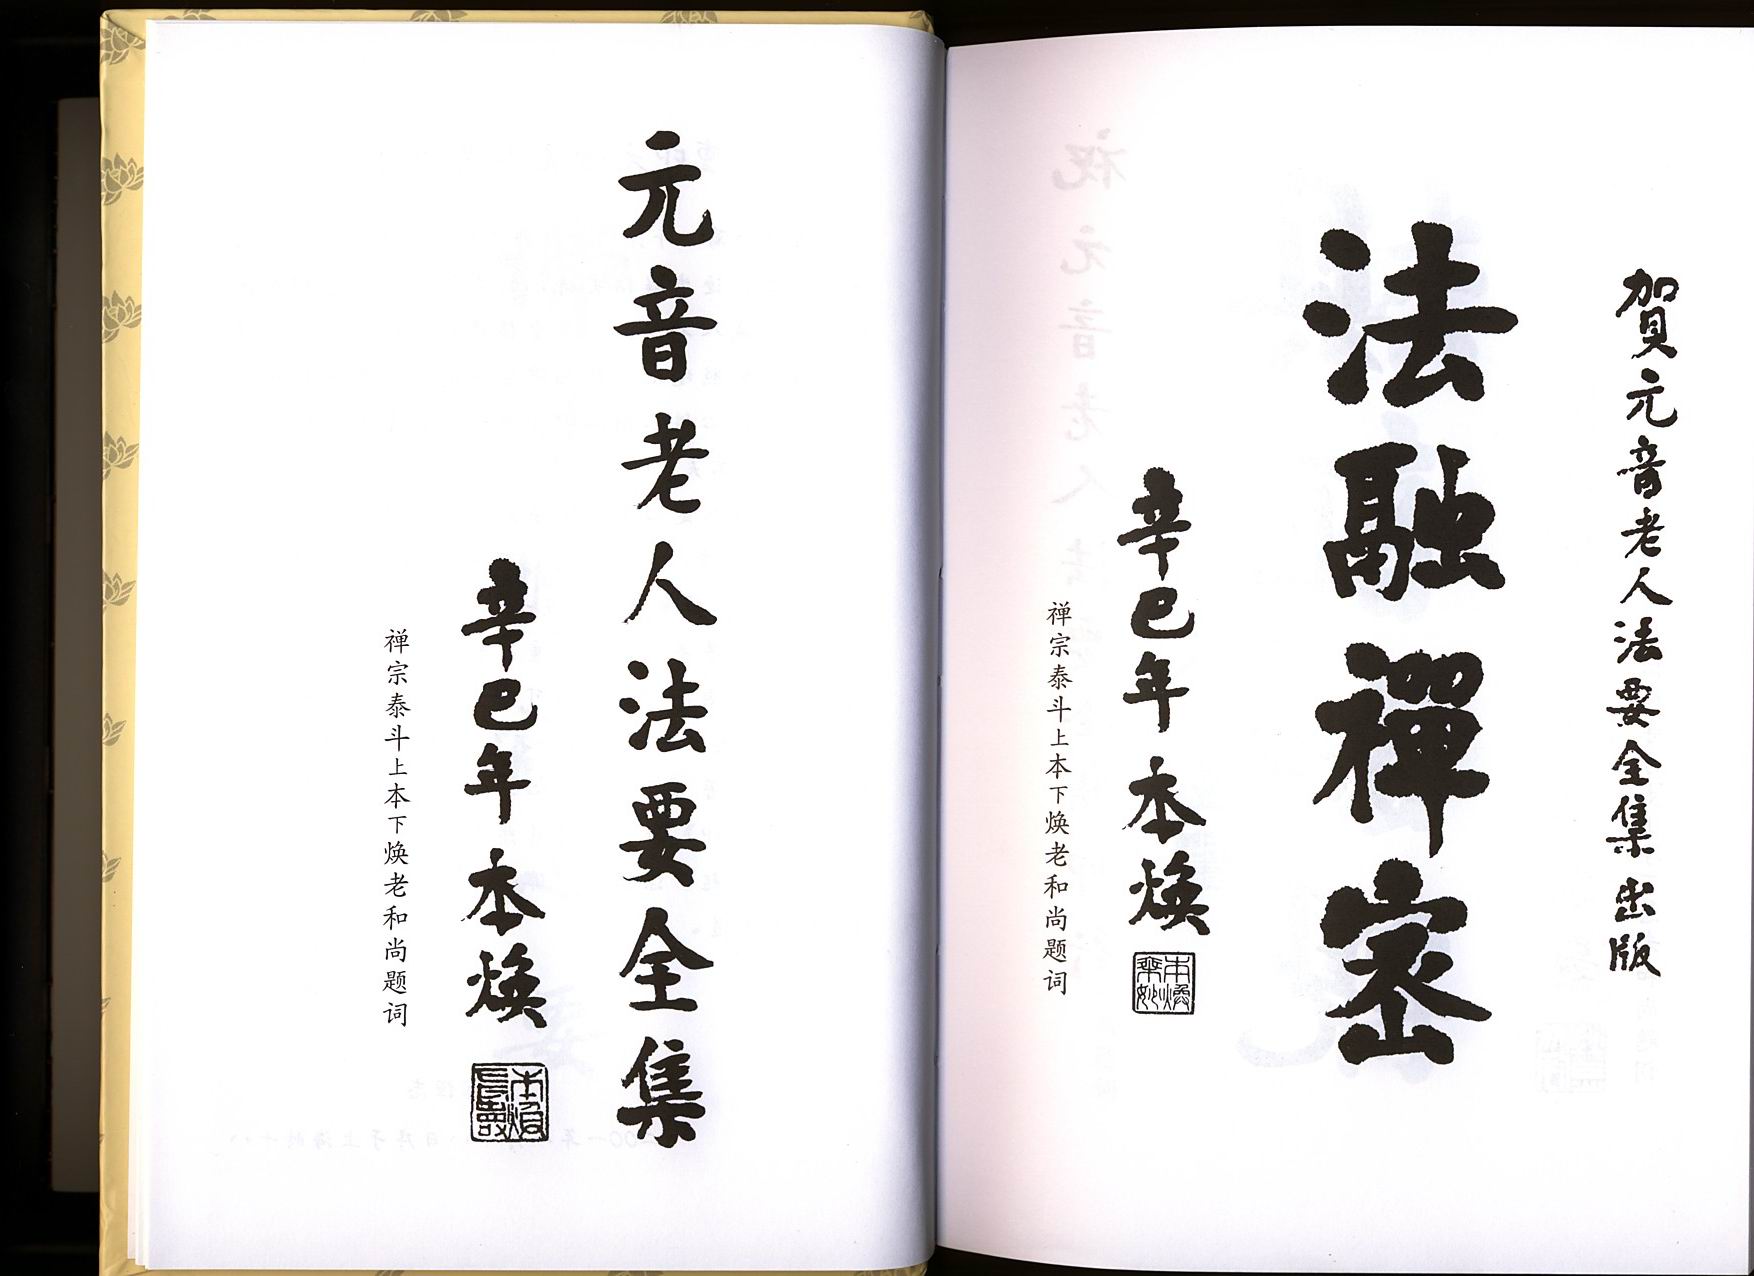 賀元音老人法要全集出版
法融禪密
辛巳年 本焕
禅宗泰斗上本下焕老和尚题词
元音老人法要全集
辛巳年 本焕
禅宗泰斗上本下焕老和尚题词